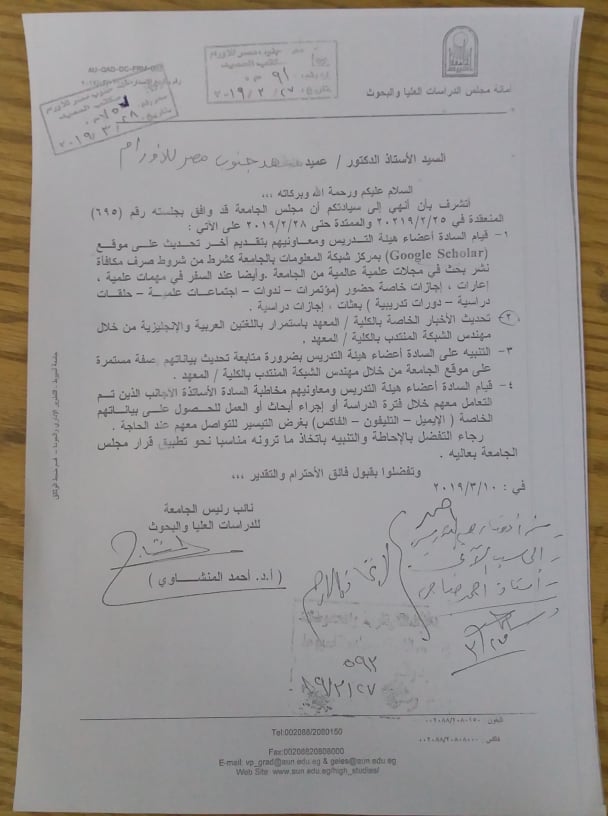 أمانة مجلس الدراسات العليا والبحوث
السيد الأستاذ الدكتور / عميد معهد جنوب مصر للأورام
السلام عليكم ورحمة الله وبركاته ،،،
أتشرف بأن أنهي إلى سيادتكم أن مجلس الجامعة قد وافق بجلسته رقم (٦٩٥)
المنعقدة في ٢٠٢١٩/٢/٢٥ والممتدة حتى ٢٠١٩/٢/٢٨ على الآتي :
١- قيام السادة أعضاء هيئة التدريس ومعاونيهم بتقديم آخر تحديث على موقع
(Google Scholar) بمركز شبكة المعلومات بالجامعة كشرط من شروط صرف مكافأة
نشر بحث في مجلات علمية عالمية من الجامعة . وأيضا عند السفر في مهمات علمية ،
إعارات ، إجازات خاصة حضور (مؤتمرات – ندوات – اجتماعات علمية – حلقات
دراسية – دورات تدريبية ) بعثات ، إجازات دراسية .
٢- تحديث الأخبار الخاصة بالكلية / المعهد باستمرار باللغتين العربية والإنجليزية من خلال
مهندس الشبكة المنتدب بالكلية / المعهد .
٣- التنبيه على السادة أعضاء هيئة التدريس بضرورة متابعة تحديث بياناتهم صفة مستمرة
على موقع الجامعة من خلال مهندس الشبكة المنتدب بالكلية / المعهد .
٤- قيام السادة أعضاء هيئة التدريس ومعاونيهم مخاطبة السادة الأساتذة الأجانب الذين تم
التعامل معهم خلال فترة الدراسة أو إجراء أبحاث أو العمل للحصول على بياناتهم
الخاصة ( الإيميل – التليفون – الفاكس) بغرض التيسير للتواصل معهم عند الحاجة .
رجاء التفضل بالإحاطة والتنبيه باتخاذ ما ترونه مناسبا نحو تطبيق قرار مجلس
الجامعة بعاليه .
وتفضلوا بقبول فائق الأحترام والتقدير ،،،
في : ٢٠١٩/٣/١٠
نائب رئيس الجامعة
للدراسات العليا والبحوث
( أ.د. أحمد المنشاوي )
٥٩٣
تلفون ٠٠٢٠٨٨/٢٠٨٠١٥٠
فاكس ٠٠٢٠٨٨/٢٠٨٠٨٠٠٠
Tel:002088/2080150
Fax:00208820808000
E-mail: vp_grad@aun.edu.eg & geles@aun.edu.eg
Web Site www.aun.edu.eg/high_studies/